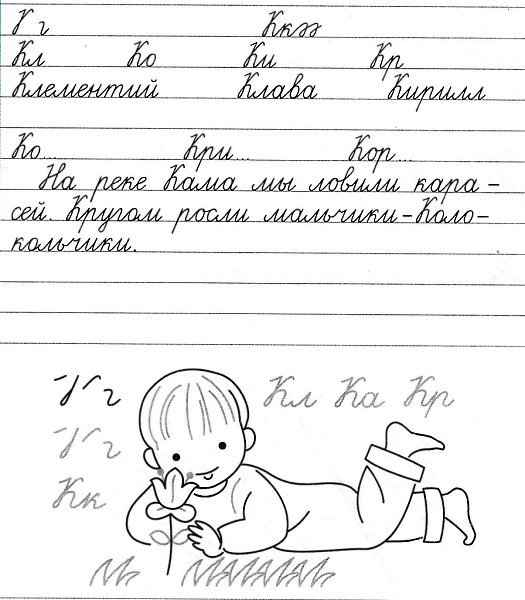 Кк
Кл Ко Ки Кр
Клементий Клава Кирилл
Ко... Кри... Кор...
На реке Кама мы ловили кара-
сей. Кругом росли мальчики-Коло-
кольчики.
Кл Ка Кр
Кк